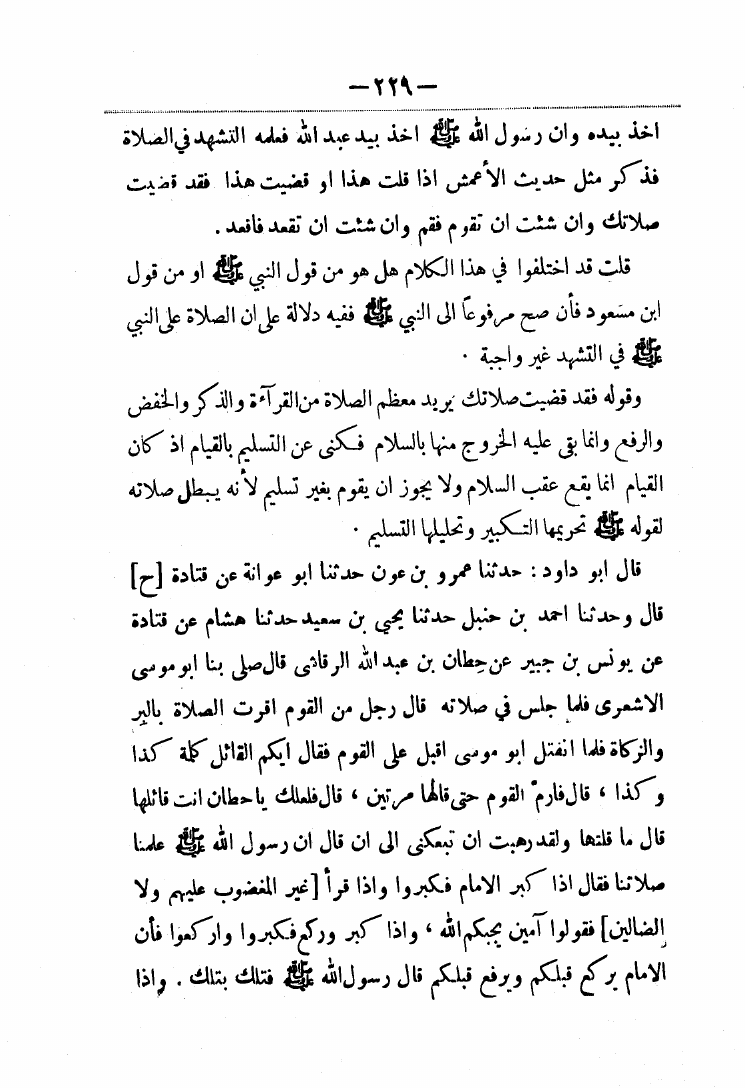 — ٢٢٩ —
اخذ بيده وان رسول الله ﷺ اخذ بيد عبد الله فعلمه التشهد في الصلاة
فذكر مثل حديث الأعمش اذا قلت هذا او قضيت هذا فقد قضيت
صلاتك وان شئت ان تقوم فقم وان شئت ان تقعد فاقعد .
قلت قد اختلفوا في هذا الكلام هل هو من قول النبي ﷺ او من قول
ابن مسعود فأن صح مرفوعاً الى النبي ﷺ ففيه دلالة على ان الصلاة على النبي
ﷺ في التشهد غير واجبة .
وقوله فقد قضيت صلاتك يريد معظم الصلاة من القرآءة والذكر والخفض
والرفع وانما بقى عليه الخروج منها بالسلام فكنى عن التسليم بالقيام اذ كان
القيام انما يقع عقب السلام ولا يجوز ان يقوم بغير تسليم لأنه يبطل صلاته
لقوله ﷺ تحريمها التكبير وتحليلها التسليم .
قال ابو داود : حدثنا عمرو بن عون حدثنا ابو عوانة عن قتادة [ح]
قال وحدثنا احمد بن حنبل حدثنا يحيى بن سعيد حدثنا هشام عن قتادة
عن يونس بن جبير عن حِطان بن عبد الله الرقاشي قال صلى بنا ابو موسى
الاشعرى فلما جلس في صلاته قال رجل من القوم اقرت الصلاة بالبِر
والزكاة فلما انفتل ابو موسى اقبل على القوم فقال ايكم القائل كلمة كذا
وكذا ، قال فارمّ القوم حتى قالها مرتين ، قال فلعلك يا حطان انت قائلها
قال ما قلتها ولقد رهبت ان تبعكنى الى ان قال ان رسول الله ﷺ علمنا
صلاتنا فقال اذا كبر الامام فكبروا واذا قرأ [غير المغضوب عليهم ولا
الضالين] فقولوا آمين يجبكم الله ، واذا كبر وركع فكبروا واركعوا فأن
الامام يركع قبلكم ويرفع قبلكم قال رسول الله ﷺ فتلك بتلك . واذا